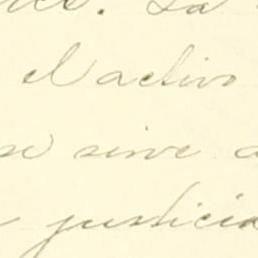 . La
el activo
se sirve a
justicia